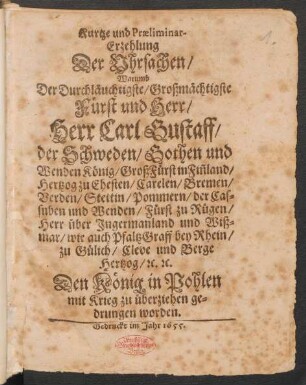 1.
Kurtze und Præliminar-
Erzehlung
Der Vhrsachen/
Warumb
Der Durchläuchtigste/Großmächtigste
Fürst und Herr/
Herr Carl Gustaff/
der Schweden/Gothen und
Wenden König/GroßFürst in Finland/
Hertzog zu Ehesten/Carelen/Bremen/
Verden/Stettin/Pommern/der Cas-
suben und Wenden/Fürst zu Rügen/
Herr über Ingermanland und Wiß-
mar/wie auch PfaltzGraff bey Rhein/
zu Gülich/Cleve und Berge
Hertzog/ꝛc. ꝛc.
Den König in Pohlen
mit Krieg zu überziehen ge-
drungen worden.
Gedruckt im Jahr 1655.